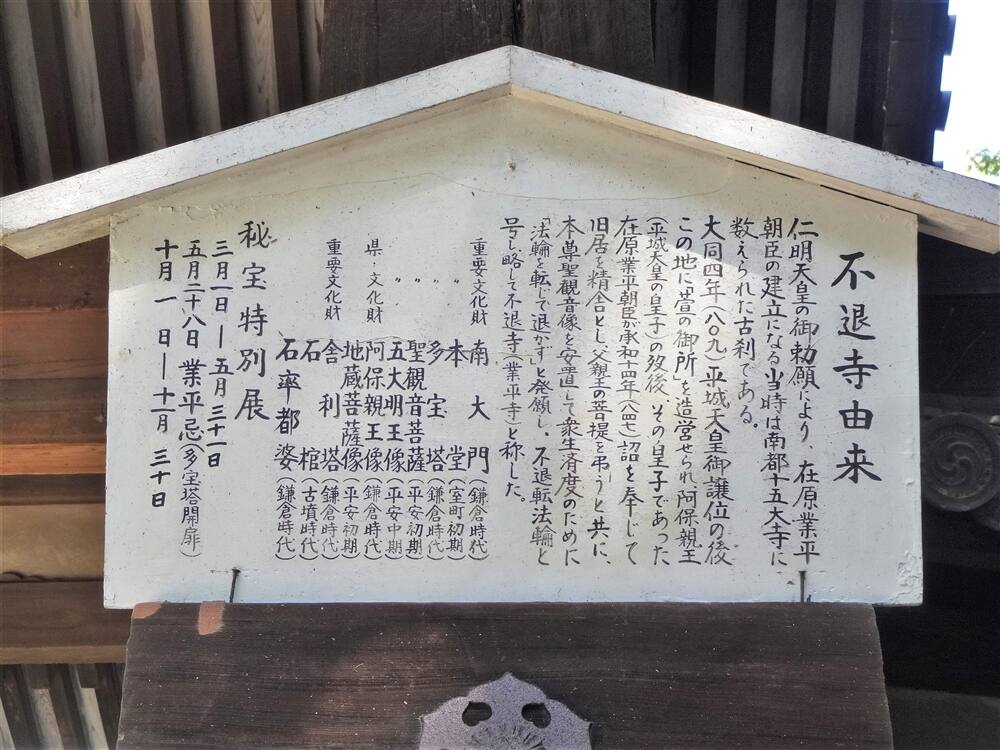 不退寺由来
仁明天皇の御勅願により、在原業平
朝臣の建立になる当時は南都十五大寺に
数えられた古刹である。
大同四年(八〇九)平城天皇御譲位の後
この地に「萱の御所」を造営せられ阿保親王
(平城天皇の皇子)の歿後、その皇子であった
在原業平朝臣が承和十四年(八四七)詔を奉じて
旧居を精舎とし、父親王の菩提を弔うと共に、
本尊聖観音像を安置して衆生済度のために
「法輪を転じて退かず」と発願し、不退転法輪と
号し略して不退寺(業平寺)と称した。
重要文化財 南大門(鎌倉時代)
〃 本堂(室町初期)
多宝塔(鎌倉時代)
〃 聖観音菩薩(平安初期)
〃 五大明王像(平安中期)
県・文化財 阿保親王像(鎌倉時代)
地蔵菩薩像(平安初期)
重要文化財 舎利塔(鎌倉時代)
石棺(古墳時代)
石卒都婆(鎌倉時代)
秘宝特別展
三月一日―五月三十一日
五月二十八日 業平忌(多宝塔開扉)
十月一日―十一月三十日